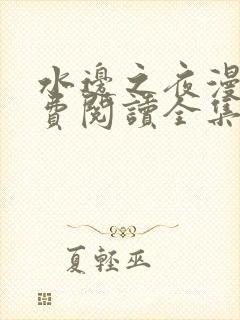 水邊之夜漫
費閱讀全集
夏輕巫